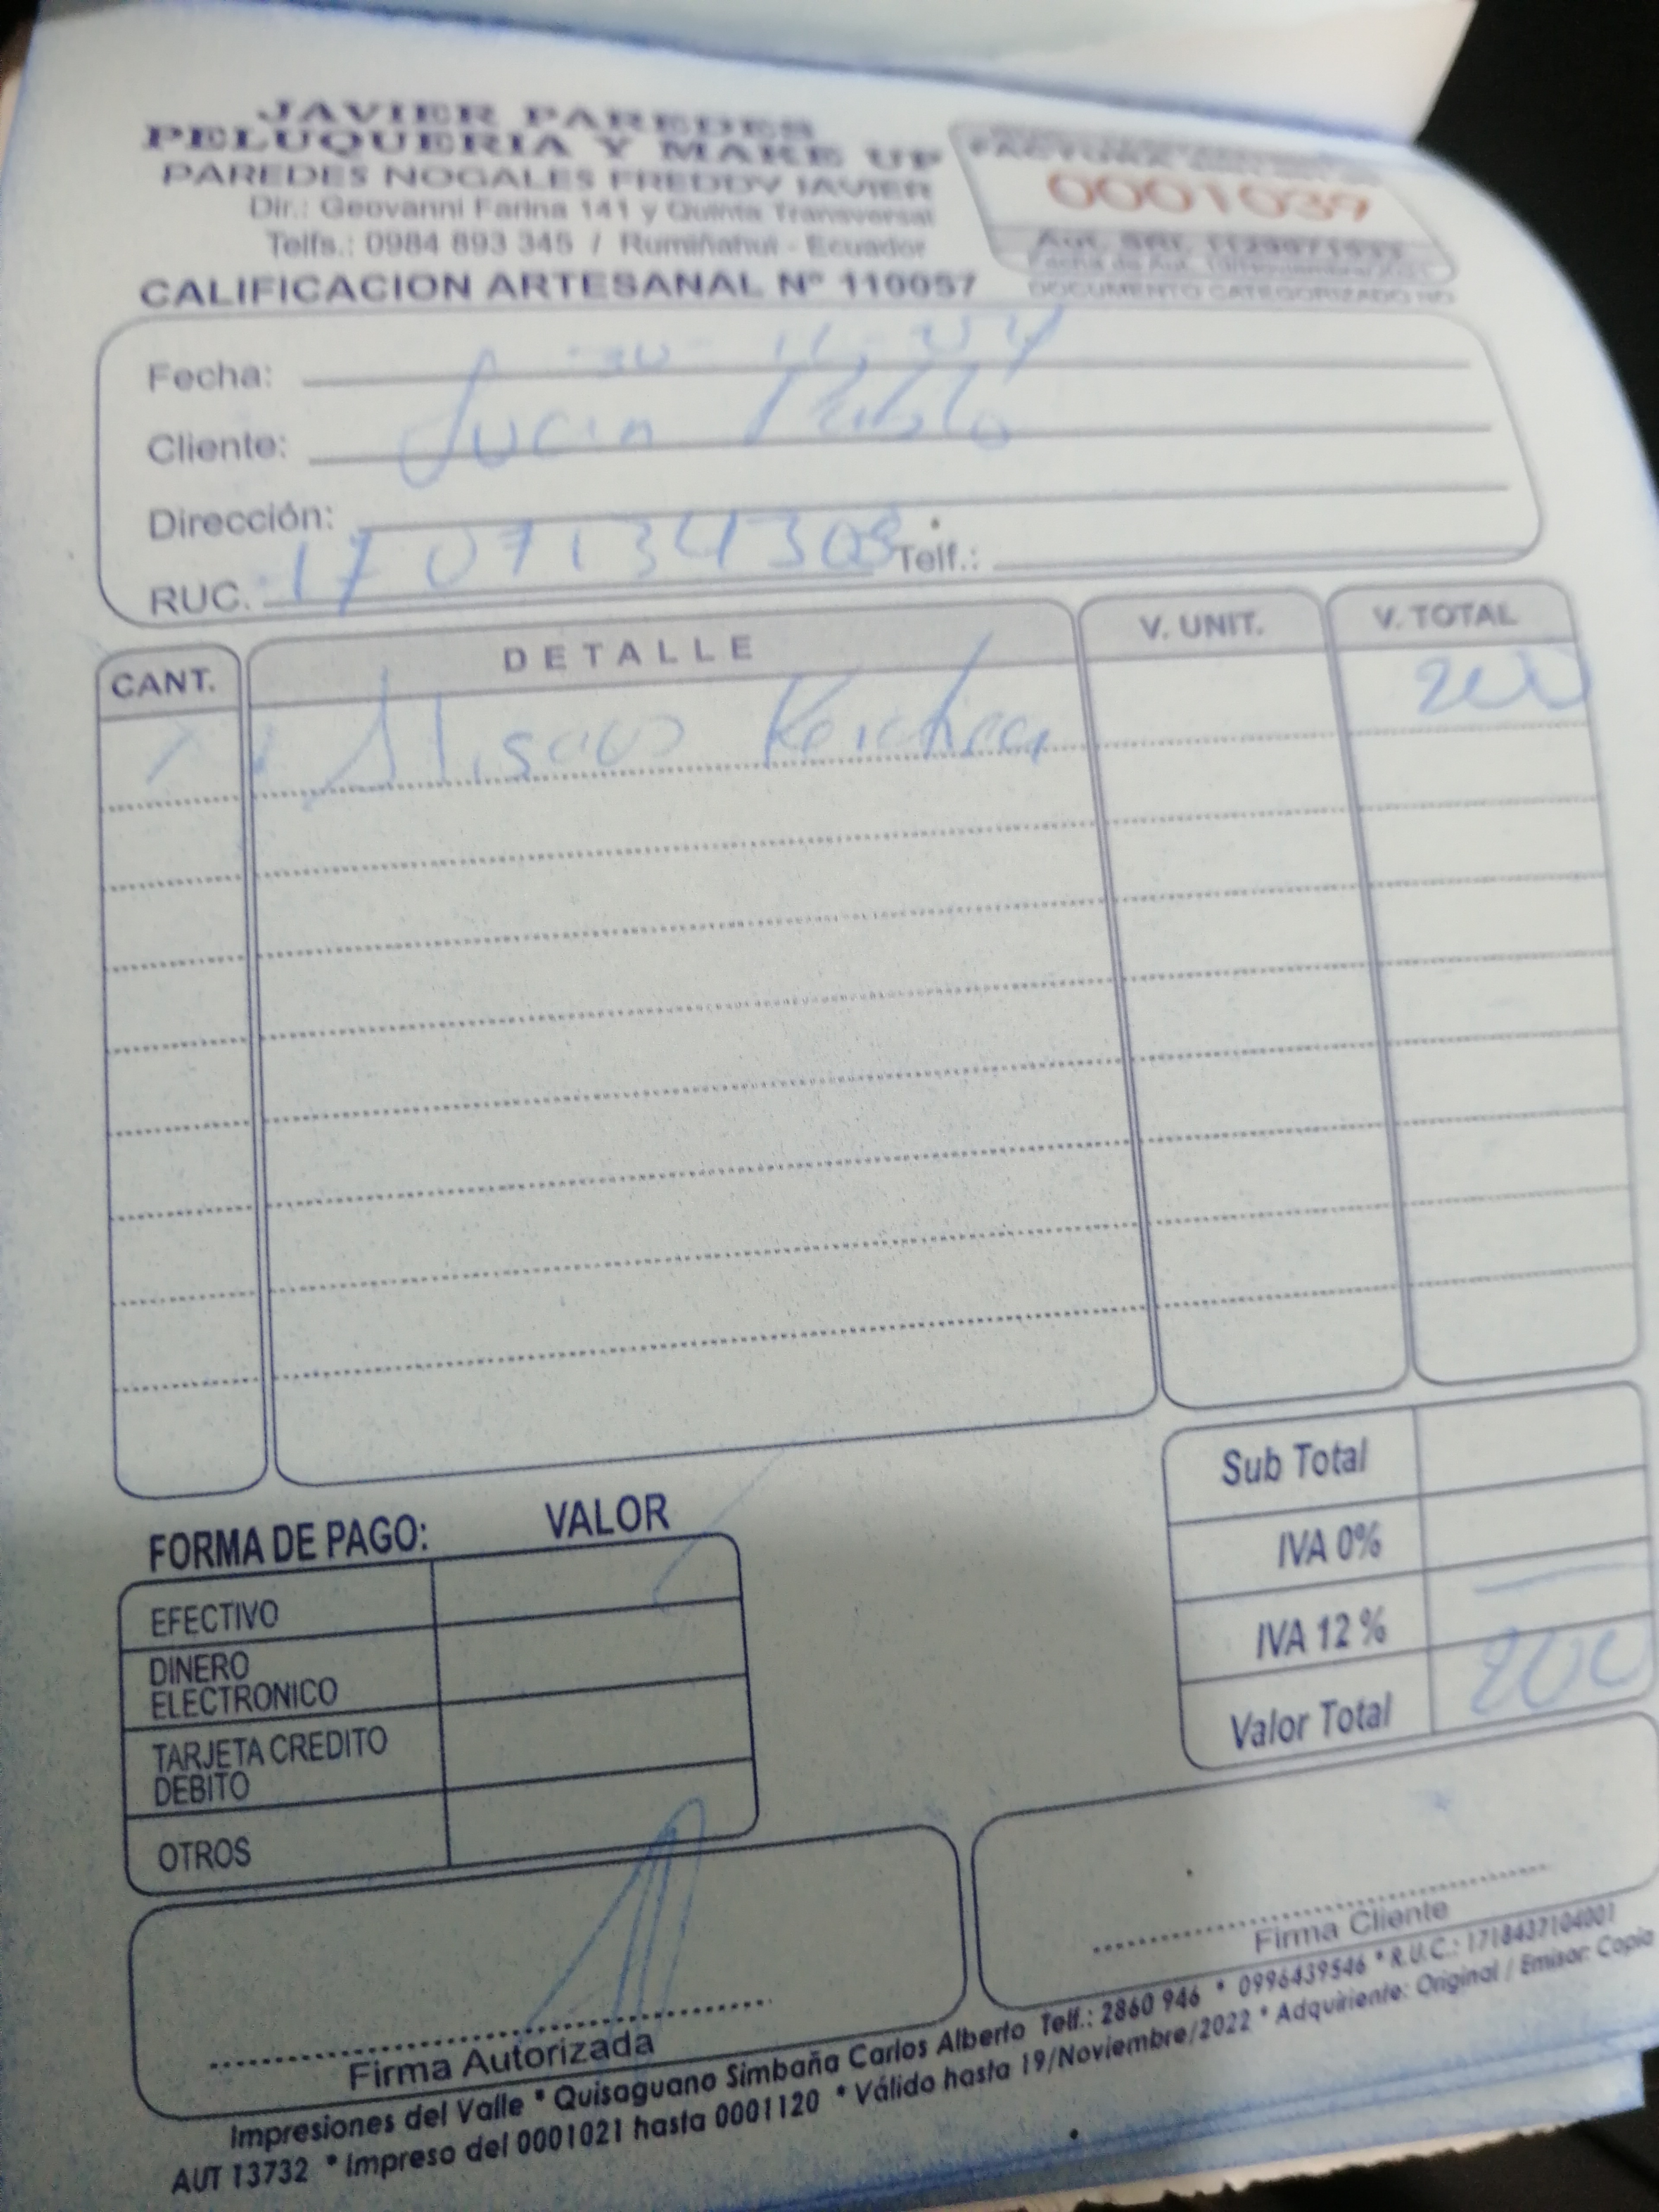 JAVIER PAREDES
PELUQUERIA Y MAKE UP
PAREDES NOGALES FREDDY JAVIER
Dir.: Geovanni Farina 141 y Quinta Transversal
Telfs.: 0984 893 345 / Rumiñahui - Ecuador
CALIFICACION ARTESANAL Nº 110057
FACTURA
0001039
Aut. SRI.
DOCUMENTO CATEGORIZADO NO
Fecha:
Cliente: Pablo
Dirección:
RUC. 1707134308 Telf.:
CANT. DETALLE V. UNIT. V. TOTAL
Alisado 200
Sub Total
IVA 0%
IVA 12%
Valor Total 200
FORMA DE PAGO: VALOR
EFECTIVO
DINERO
ELECTRONICO
TARJETA CREDITO
DEBITO
OTROS
Firma Autorizada
Firma Cliente
Impresiones del Valle * Quisaguano Simbaña Carlos Alberto Telf.: 2860 946 * 0996439546 * R.U.C.: 1718437104001
AUT 13732 * Impreso del 0001021 hasta 0001120 * Válido hasta 19/Noviembre/2022 * Adquiriente: Original / Emisor: Copia